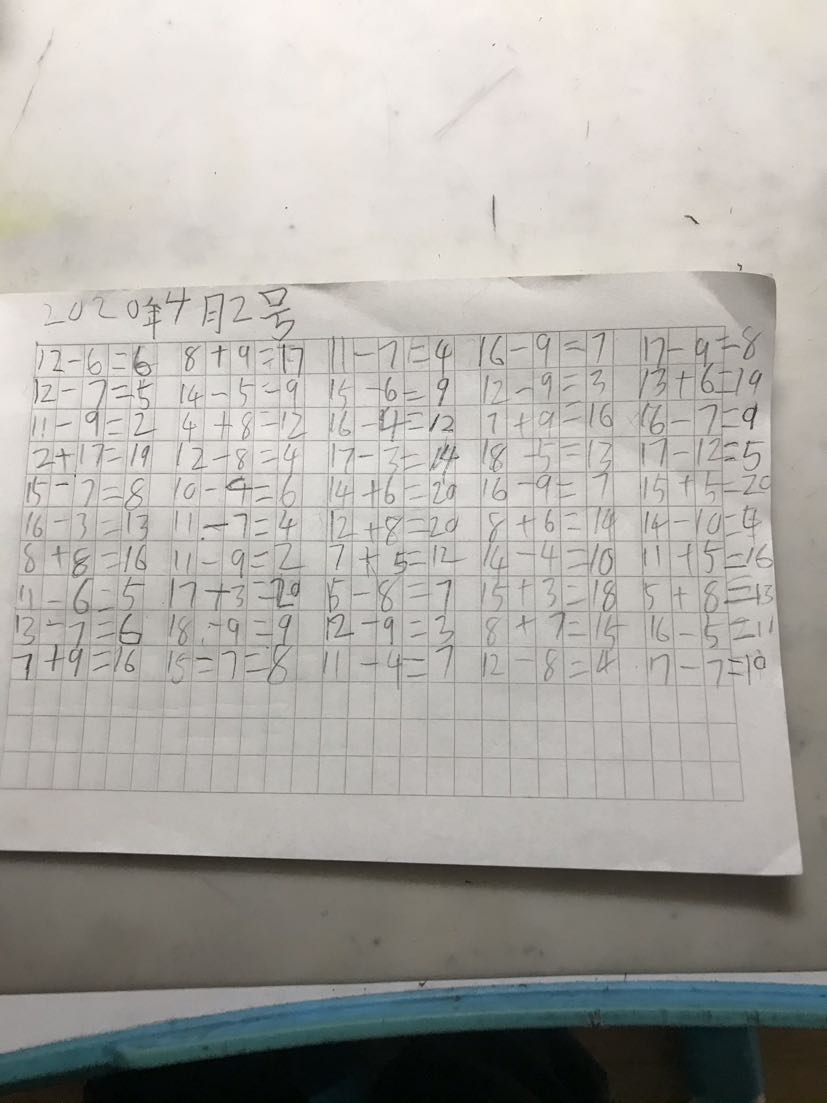 2020年4月2号
12-6=6 8+9=17 11-7=4 16-9=7 17-9=8
12-7=5 14-5=9 15-6=9 12-9=3 13+6=19
11-9=2 4+8=12 16-4=12 7+9=16 16-7=9
2+17=19 12-8=4 17-3=14 18-5=13 17-12=5
15-7=8 10-4=6 14+6=20 16-9=7 15+5=20
16-3=13 11-7=4 12+8=20 8+6=14 14-10=4
8+8=16 11-9=2 7+5=12 14-4=10 11+5=16
11-6=5 17+3=20 15-8=7 15+3=18 5+8=13
13-7=6 18-9=9 12-9=3 8+7=15 16-5=11
7+9=16 15-7=8 11-4=7 12-8=4 17-7=10